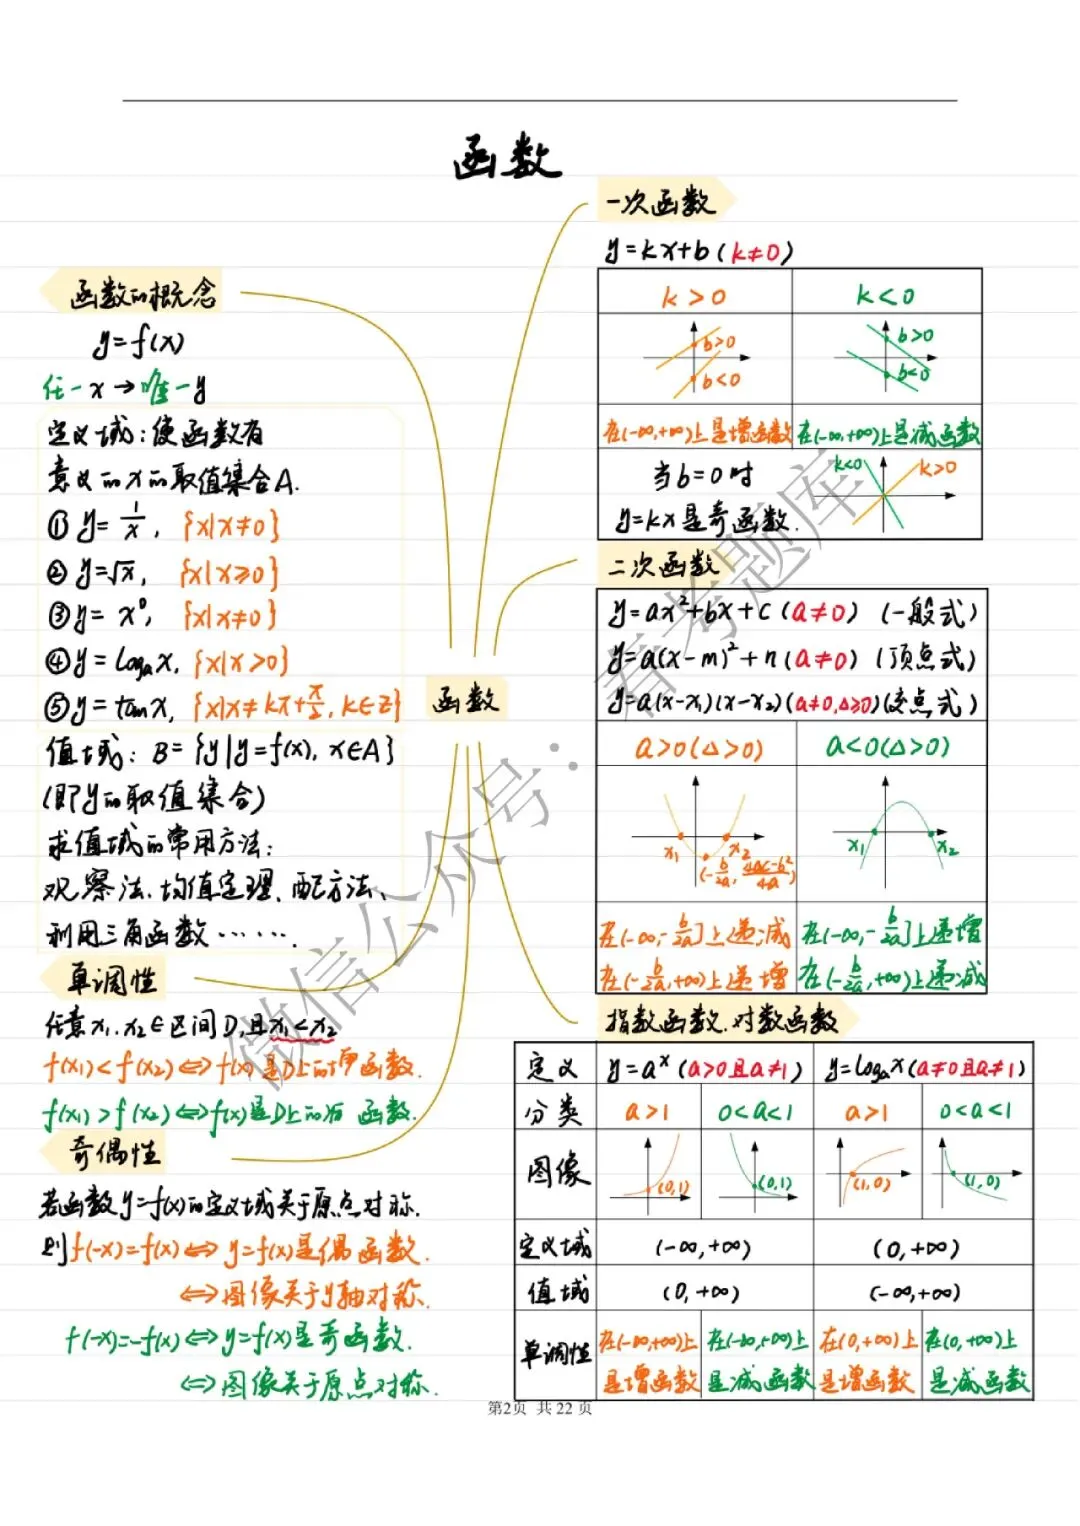 函数
函数的概念
y=f(x)
任一x→唯一y
定义域:使函数有
意义的x的取值集合A.
① y=1/x, {x|x≠0}
② y=√x, {x|x≥0}
③ y= x⁰, {x|x≠0}
④ y=logₐx, {x|x>0}
⑤ y=tanx, {x|x≠kπ+π/2, k∈Z}
值域: B={y|y=f(x), x∈A}
(即y的取值集合)
求值域的常用方法:
观察法、均值定理、配方法、
利用三角函数……
单调性
任意x₁.x₂∈区间D,且x₁<x₂
f(x₁)<f(x₂)⇔f(x)是D上的增函数.
f(x₁)>f(x₂)⇔f(x)是D上的 函数.
奇偶性
若函数y=f(x)的定义域关于原点对称.
则f(-x)=f(x)⇔y=f(x)是偶函数.
⇔图像关于y轴对称.
f(-x)=-f(x)⇔y=f(x)是奇函数.
⇔图像关于原点对称.
函数
一次函数
y=kx+b(k≠0)
k>0 k<0
b>0 b>0
b<0 b<0
在(-∞,+∞)上是增函数 在(-∞,+∞)上是减函数
当b=0时
y=kx是奇函数.
k<0 k>0
二次函数
y=ax²+bx+c(a≠0) (一般式)
y=a(x-m)²+n(a≠0) (顶点式)
y=a(x-x₁)(x-x₂)(a≠0,Δ≥0)(交点式)
a>0(Δ>0) a<0(Δ>0)
x₁ x₂ x₁ x₂
(-b/2a, 4ac-b²/4a)
在(-∞,-b/2a]上递减 在(-∞,-b/2a]上递增
在(-b/2a,+∞)上递增 在(-b/2a,+∞)上递减
指数函数.对数函数
定义 y=aˣ(a>0且a≠1) y=logₐx(a≠0且a≠1)
分类 a>1 0<a<1 a>1 0<a<1
图像 (0,1) (0,1) (1,0) (1,0)
定义域 (-∞,+∞) (0,+∞)
值域 (0,+∞) (-∞,+∞)
单调性 在(-∞,+∞)上是增函数 在(-∞,+∞)上是减函数 在(0,+∞)上是增函数 在(0,+∞)上是减函数
微信公众号:春考题库
第2页 共 22 页